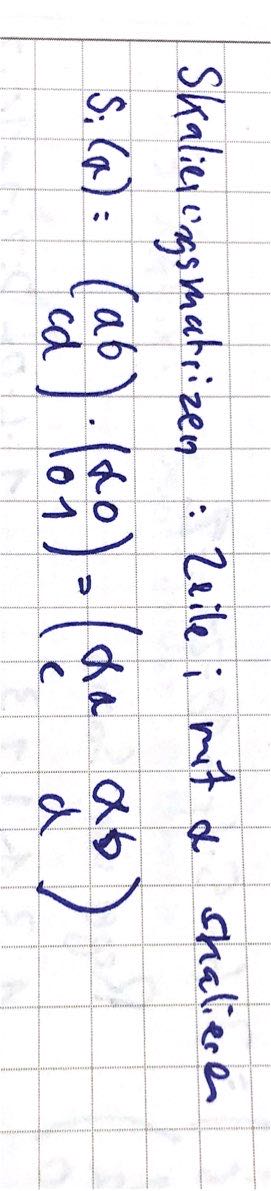 Skalierungsmatrizen : Zeile i mit α skalieren
Sᵢ(α): (ab cd) · (α0 01) = (αa αb c d)